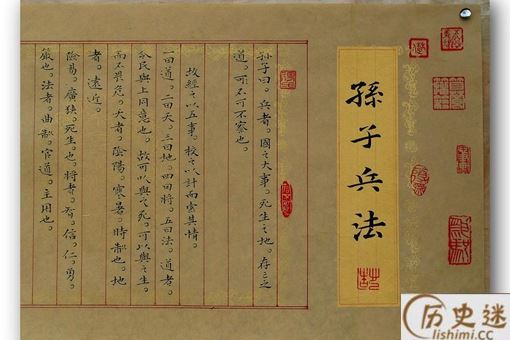 孫子兵法
孫子曰。兵者。國之大事。死生之地。存亡之
道。不可不察也。
故經之以五事。校之以計而索其情。
一曰道。二曰天。三曰地。四曰將。五曰法。道者。
令民與上同意也。故可以與之死。可以與之生。
而不畏危。天者。陰陽。寒暑。時制也。地
者。遠近。
險易。廣狹。死生也。將者。智。信。仁。勇。
嚴也。法者。曲制。官道。主用也。
历史迷
lishimi.cc